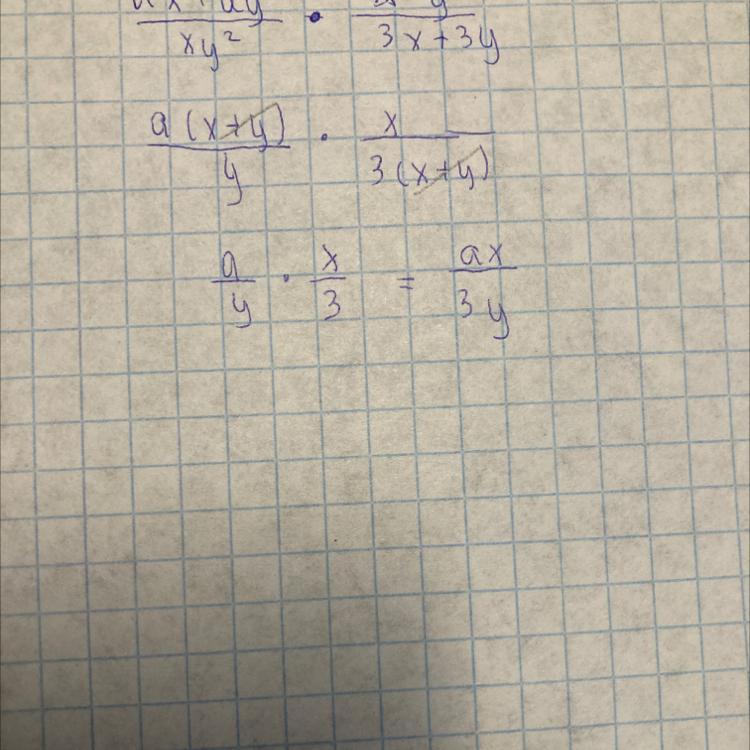 ax + ay / xy² · y / 3x+3y
a (x+y) / y · x / 3 (x+y)
a / y · x / 3 = ax / 3y